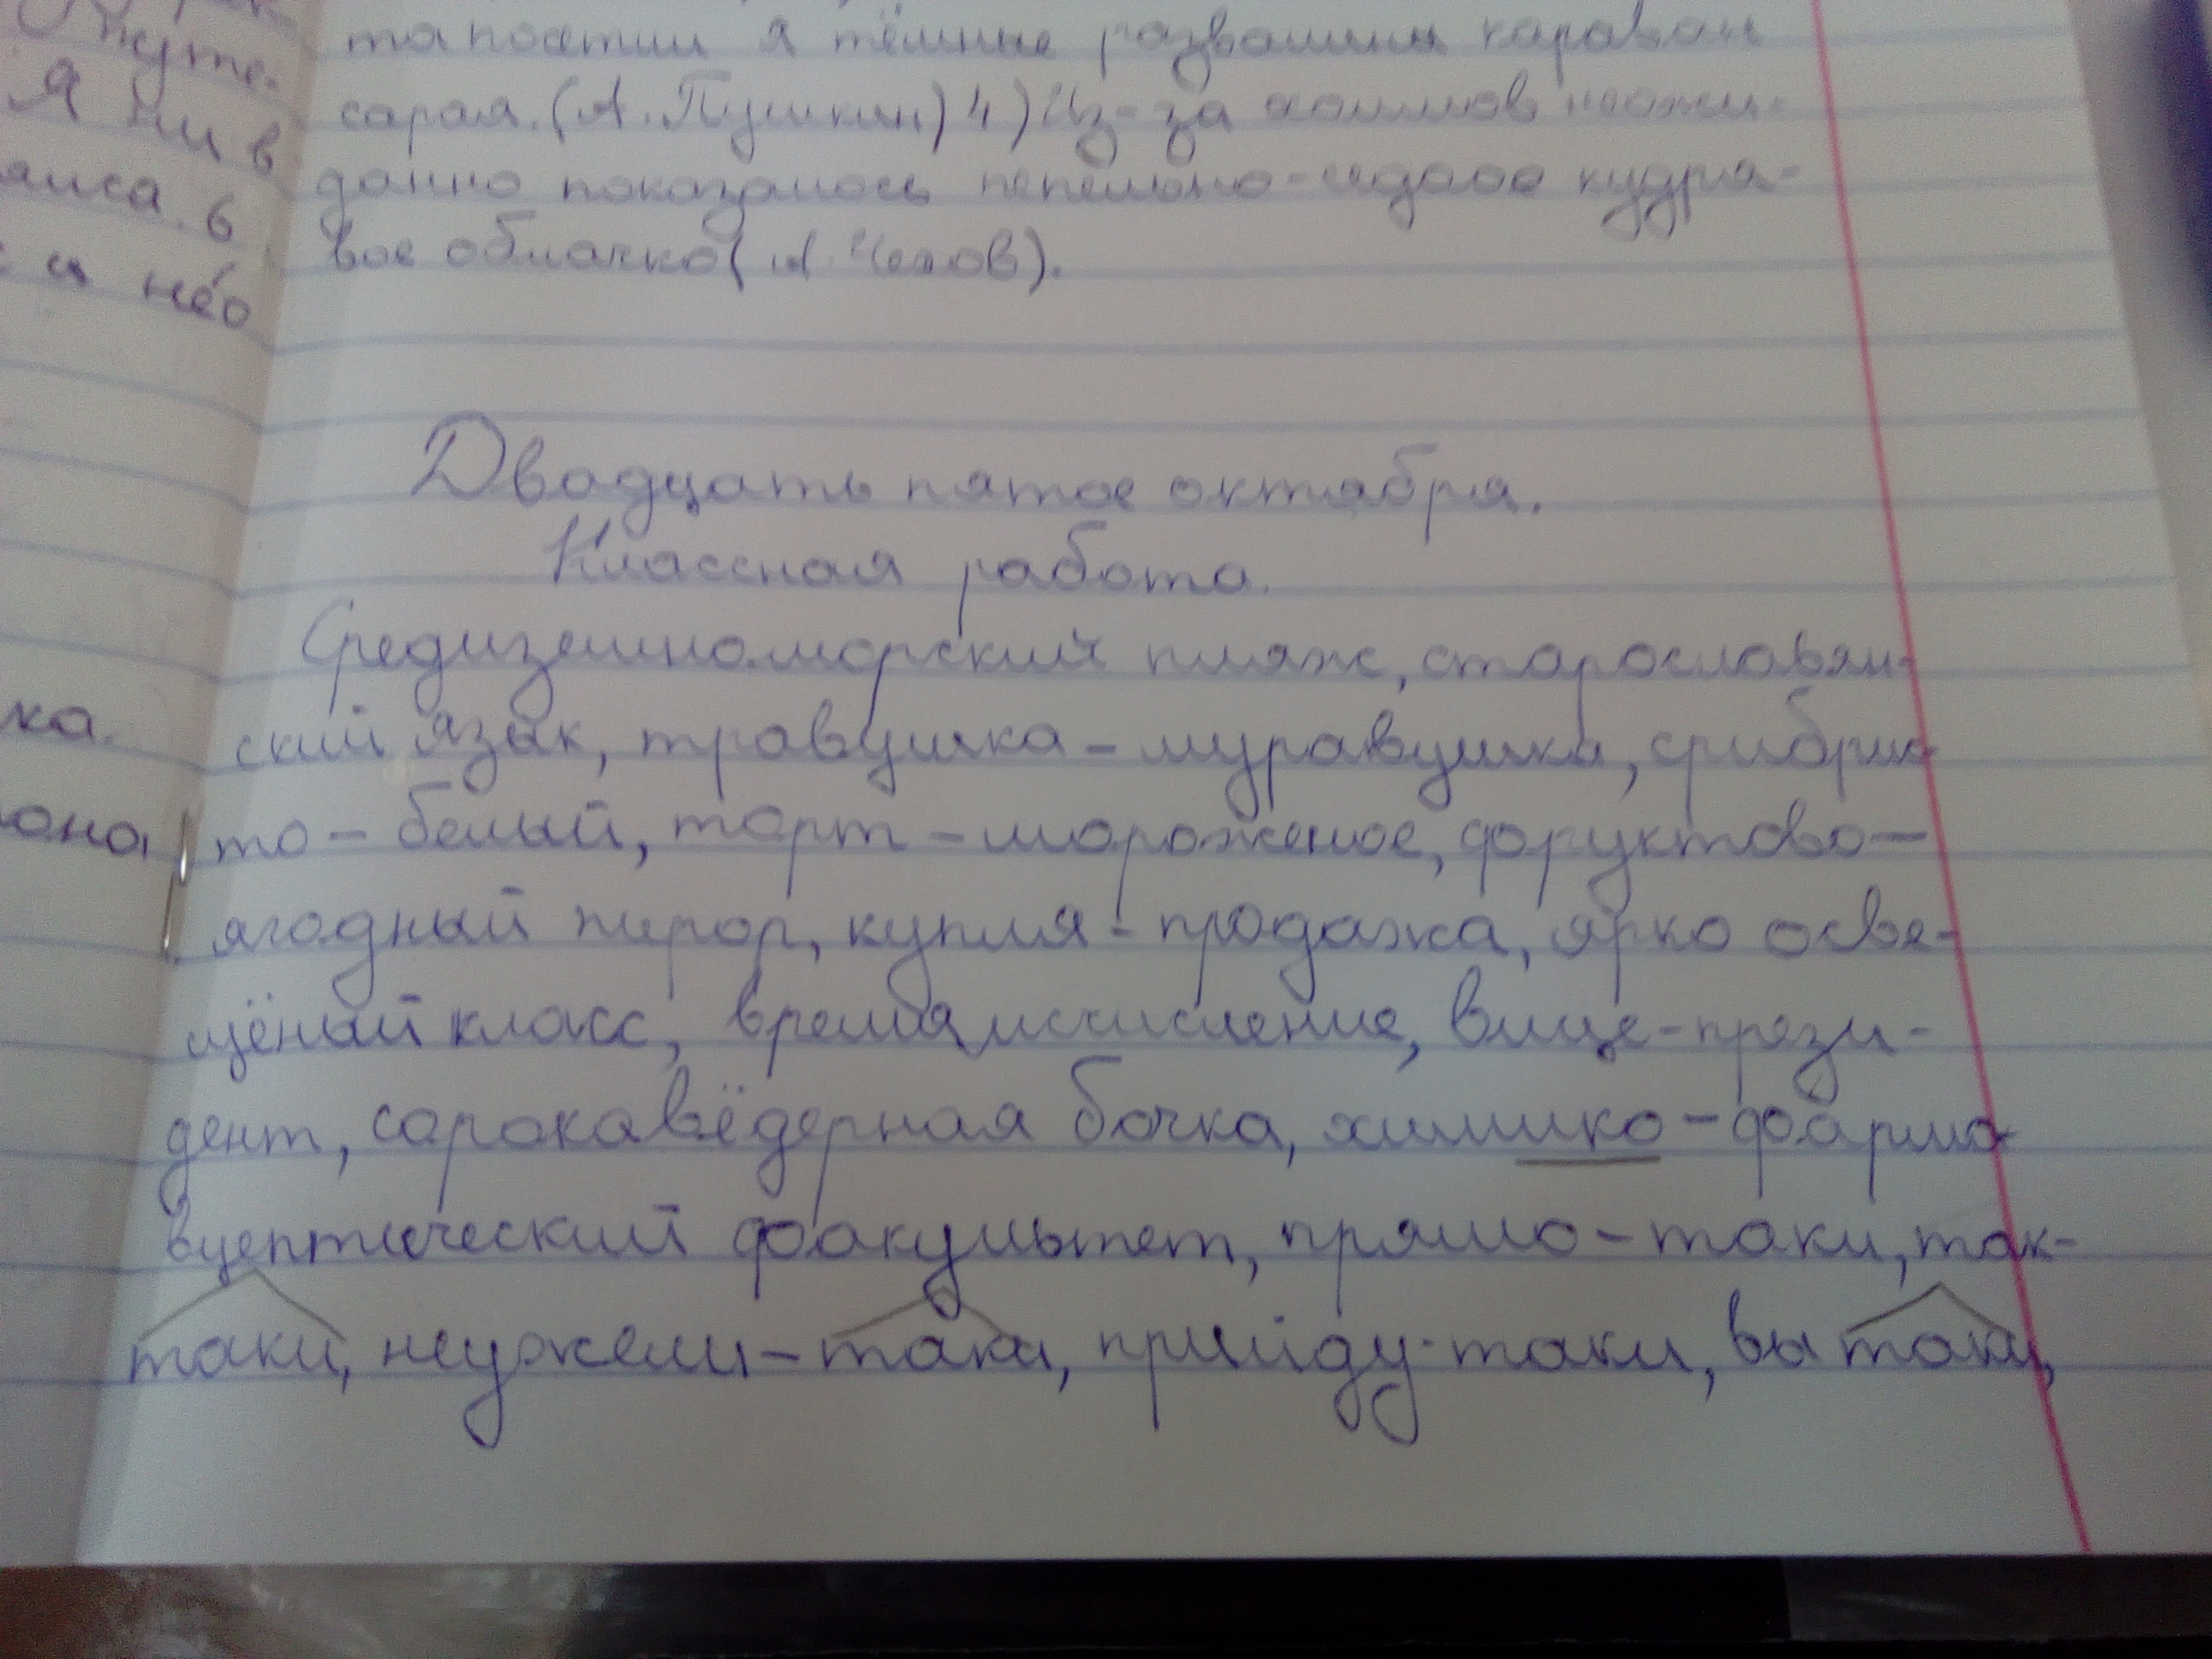 та посетил я тёмные развалины караван
сарая. (А. Пушкин) 4) Из-за холмов неожи-
данно показалось пепельно-седое кудря-
вое облачко (А. Чехов).
Двадцать пятое октября.
Классная работа.
Средиземноморский пляж, старославян-
ский язык, травушка-муравушка, срибрис
то-белый, торт-мороженое, форуктово-
ягодный пирог, купля-продажа, ярко осве-
щёный класс, времяисчисление, вице-прези-
дент, сорокавёдерная бочка, химико-фарма
вцептический факультет, прямо-таки, так-
таки, неужели-таки, прийду-таки, вы таки,
Я ни в
и нео
ка.
она